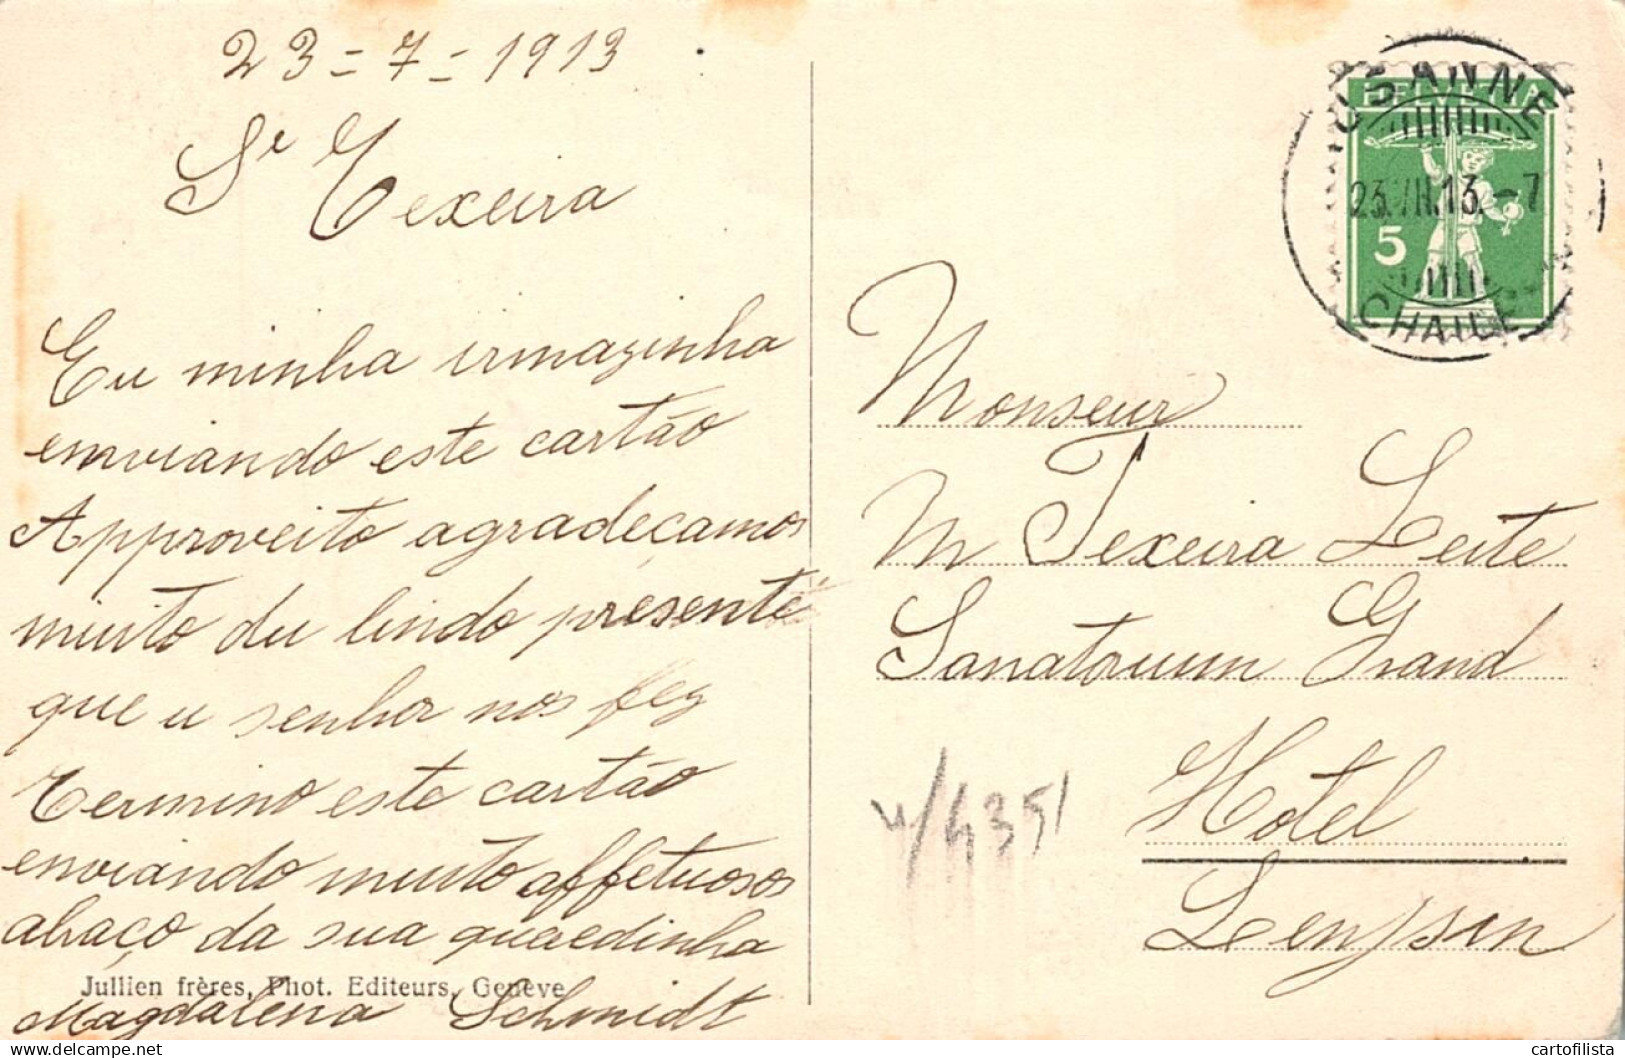 23-7-1913
Sr Texeira
Eu minha irmazinha
enviando este cartão
Approveito agradeçamos
muito du lindo presente
que u senhor nos fez
Termino este cartão
enviando muito affetuosos
abraço da sua queredinha
Jullien frères, Phot. Editeurs, Genève
Magdalena Schmidt
USANNE
HELVETIA
23.VII.13.-7
5
Monseur
M Texeira Leite
Sanatorium Grand
Hotel
Lenysin
4351
cartofilista